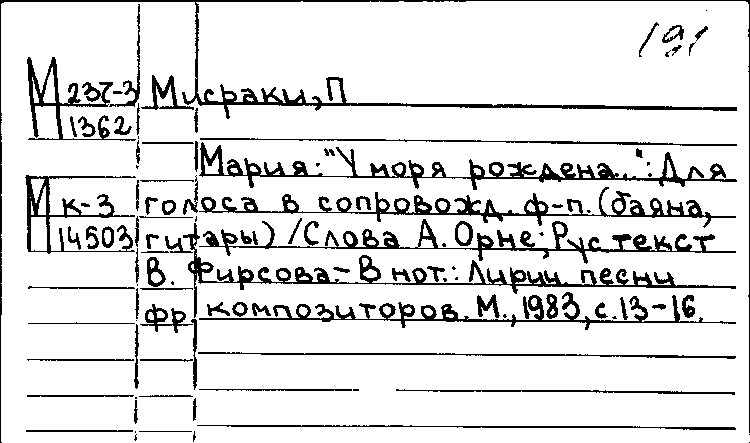 191
М 237-3 Мисраки, П
1362
Мария: "У моря рождена...": Для
М к-3 голоса в сопровожд. ф-п. (баяна,
14503 гитары) / Слова А. Орне; Рус. текст
В. Фирсова. - В нот.: Лирич. песни
фр. композиторов. М., 1983, с. 13-16.